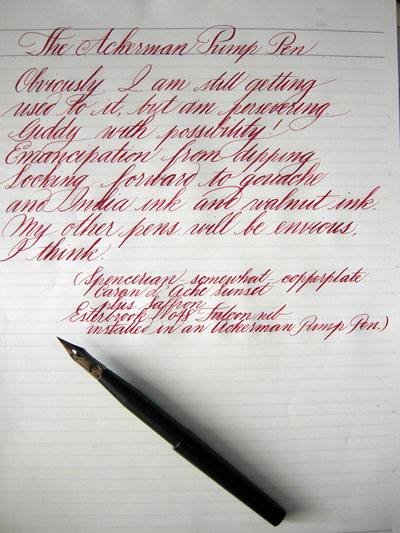 The Ackerman Pump Pen
Obviously I am still getting
used to it, but am persevering.
Giddy with possibility!
Emancipation from dipping
Looking forward to gouache
and India ink and walnut ink.
My other pens will be envious,
I think.
(Spencerian somewhat copperplate
Caran d'Ache Sunset
plus Saffron
Esterbrook 048 Falcon nib
installed in an Ackerman Pump Pen.)